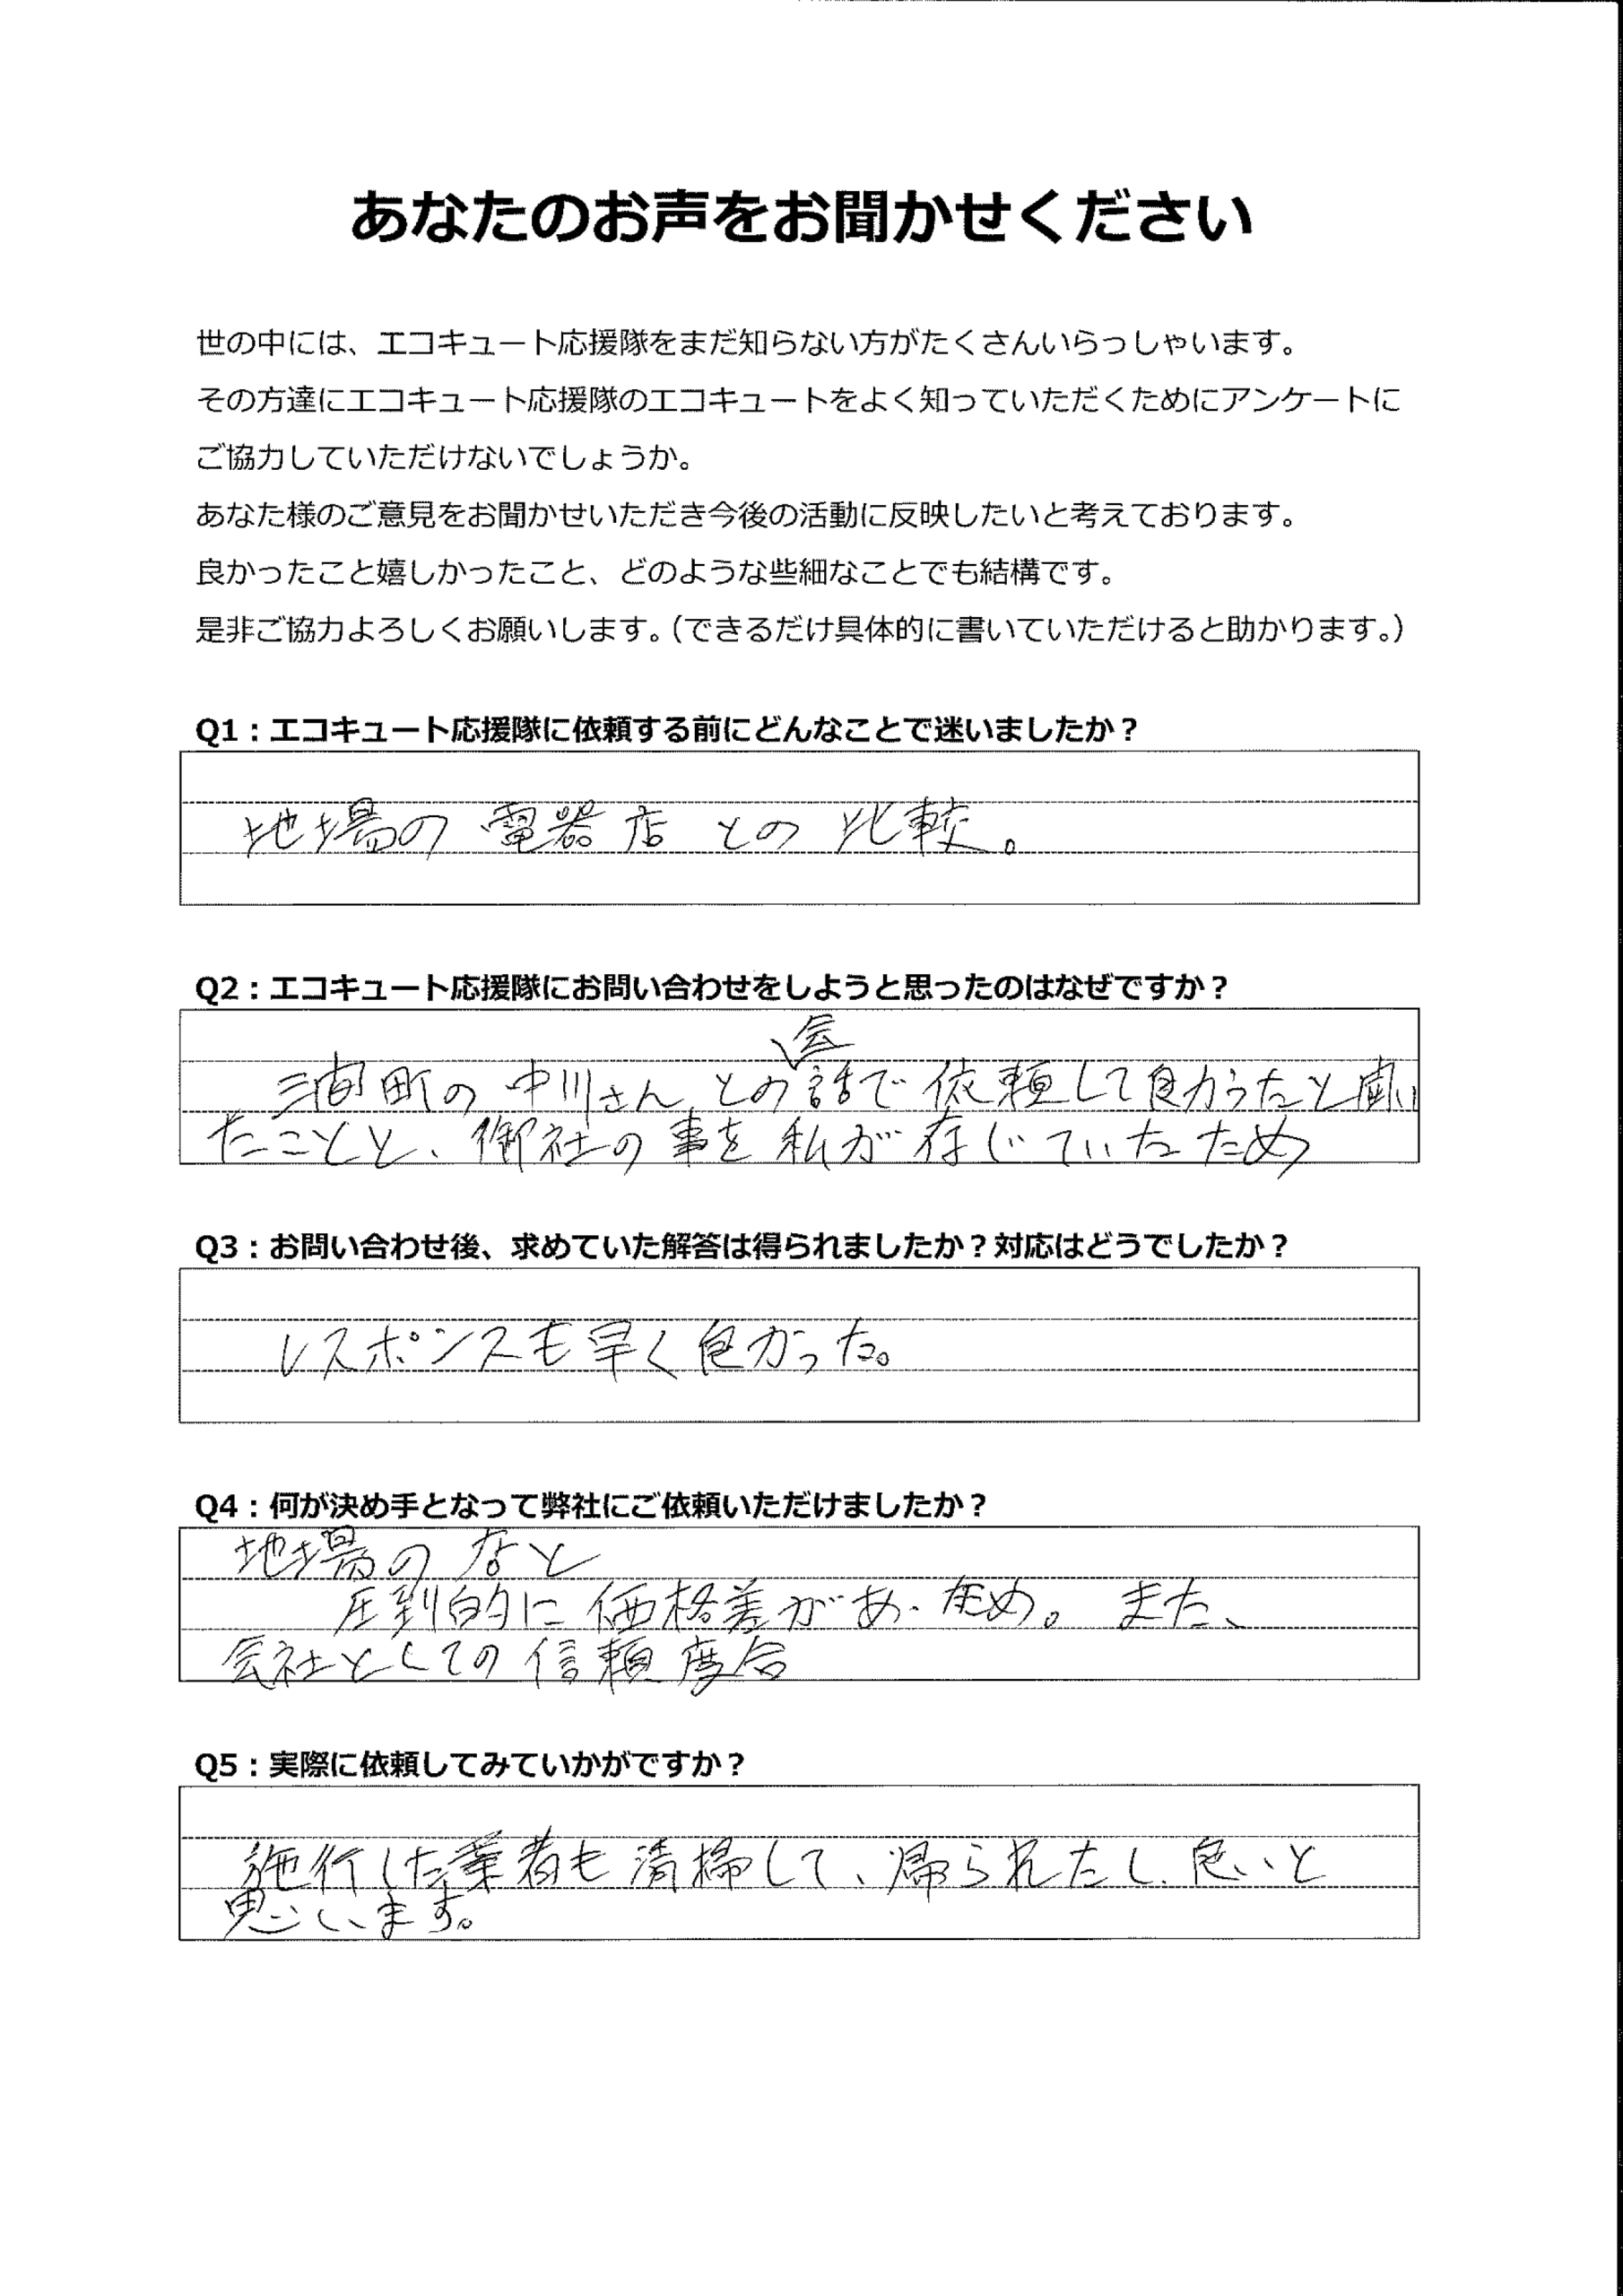 あなたのお声をお聞かせください
世の中には、エコキュート応援隊をまだ知らない方がたくさんいらっしゃいます。
その方達にエコキュート応援隊のエコキュートをよく知っていただくためにアンケートに
ご協力していただけないでしょうか。
あなた様のご意見をお聞かせいただき今後の活動に反映したいと考えております。
良かったこと嬉しかったこと、どのような些細なことでも結構です。
是非ご協力よろしくお願いします。（できるだけ具体的に書いていただけると助かります。）
Q1：エコキュート応援隊に依頼する前にどんなことで迷いましたか？
地場の電器店との比較。
Q2：エコキュート応援隊にお問い合わせをしようと思ったのはなぜですか？
町の中川さんとの会話で依頼して良かったと
たことと、御社の事を私が存じていたため
Q3：お問い合わせ後、求めていた解答は得られましたか？対応はどうでしたか？
レスポンスも早く良かった。
Q4：何が決め手となって弊社にご依頼いただけましたか？
地場の
圧到的に価格差があったため。また、
会社としての信頼度合
Q5：実際に依頼してみていかがですか？
施行した業者も清掃して、帰られたし、良いと
思います。